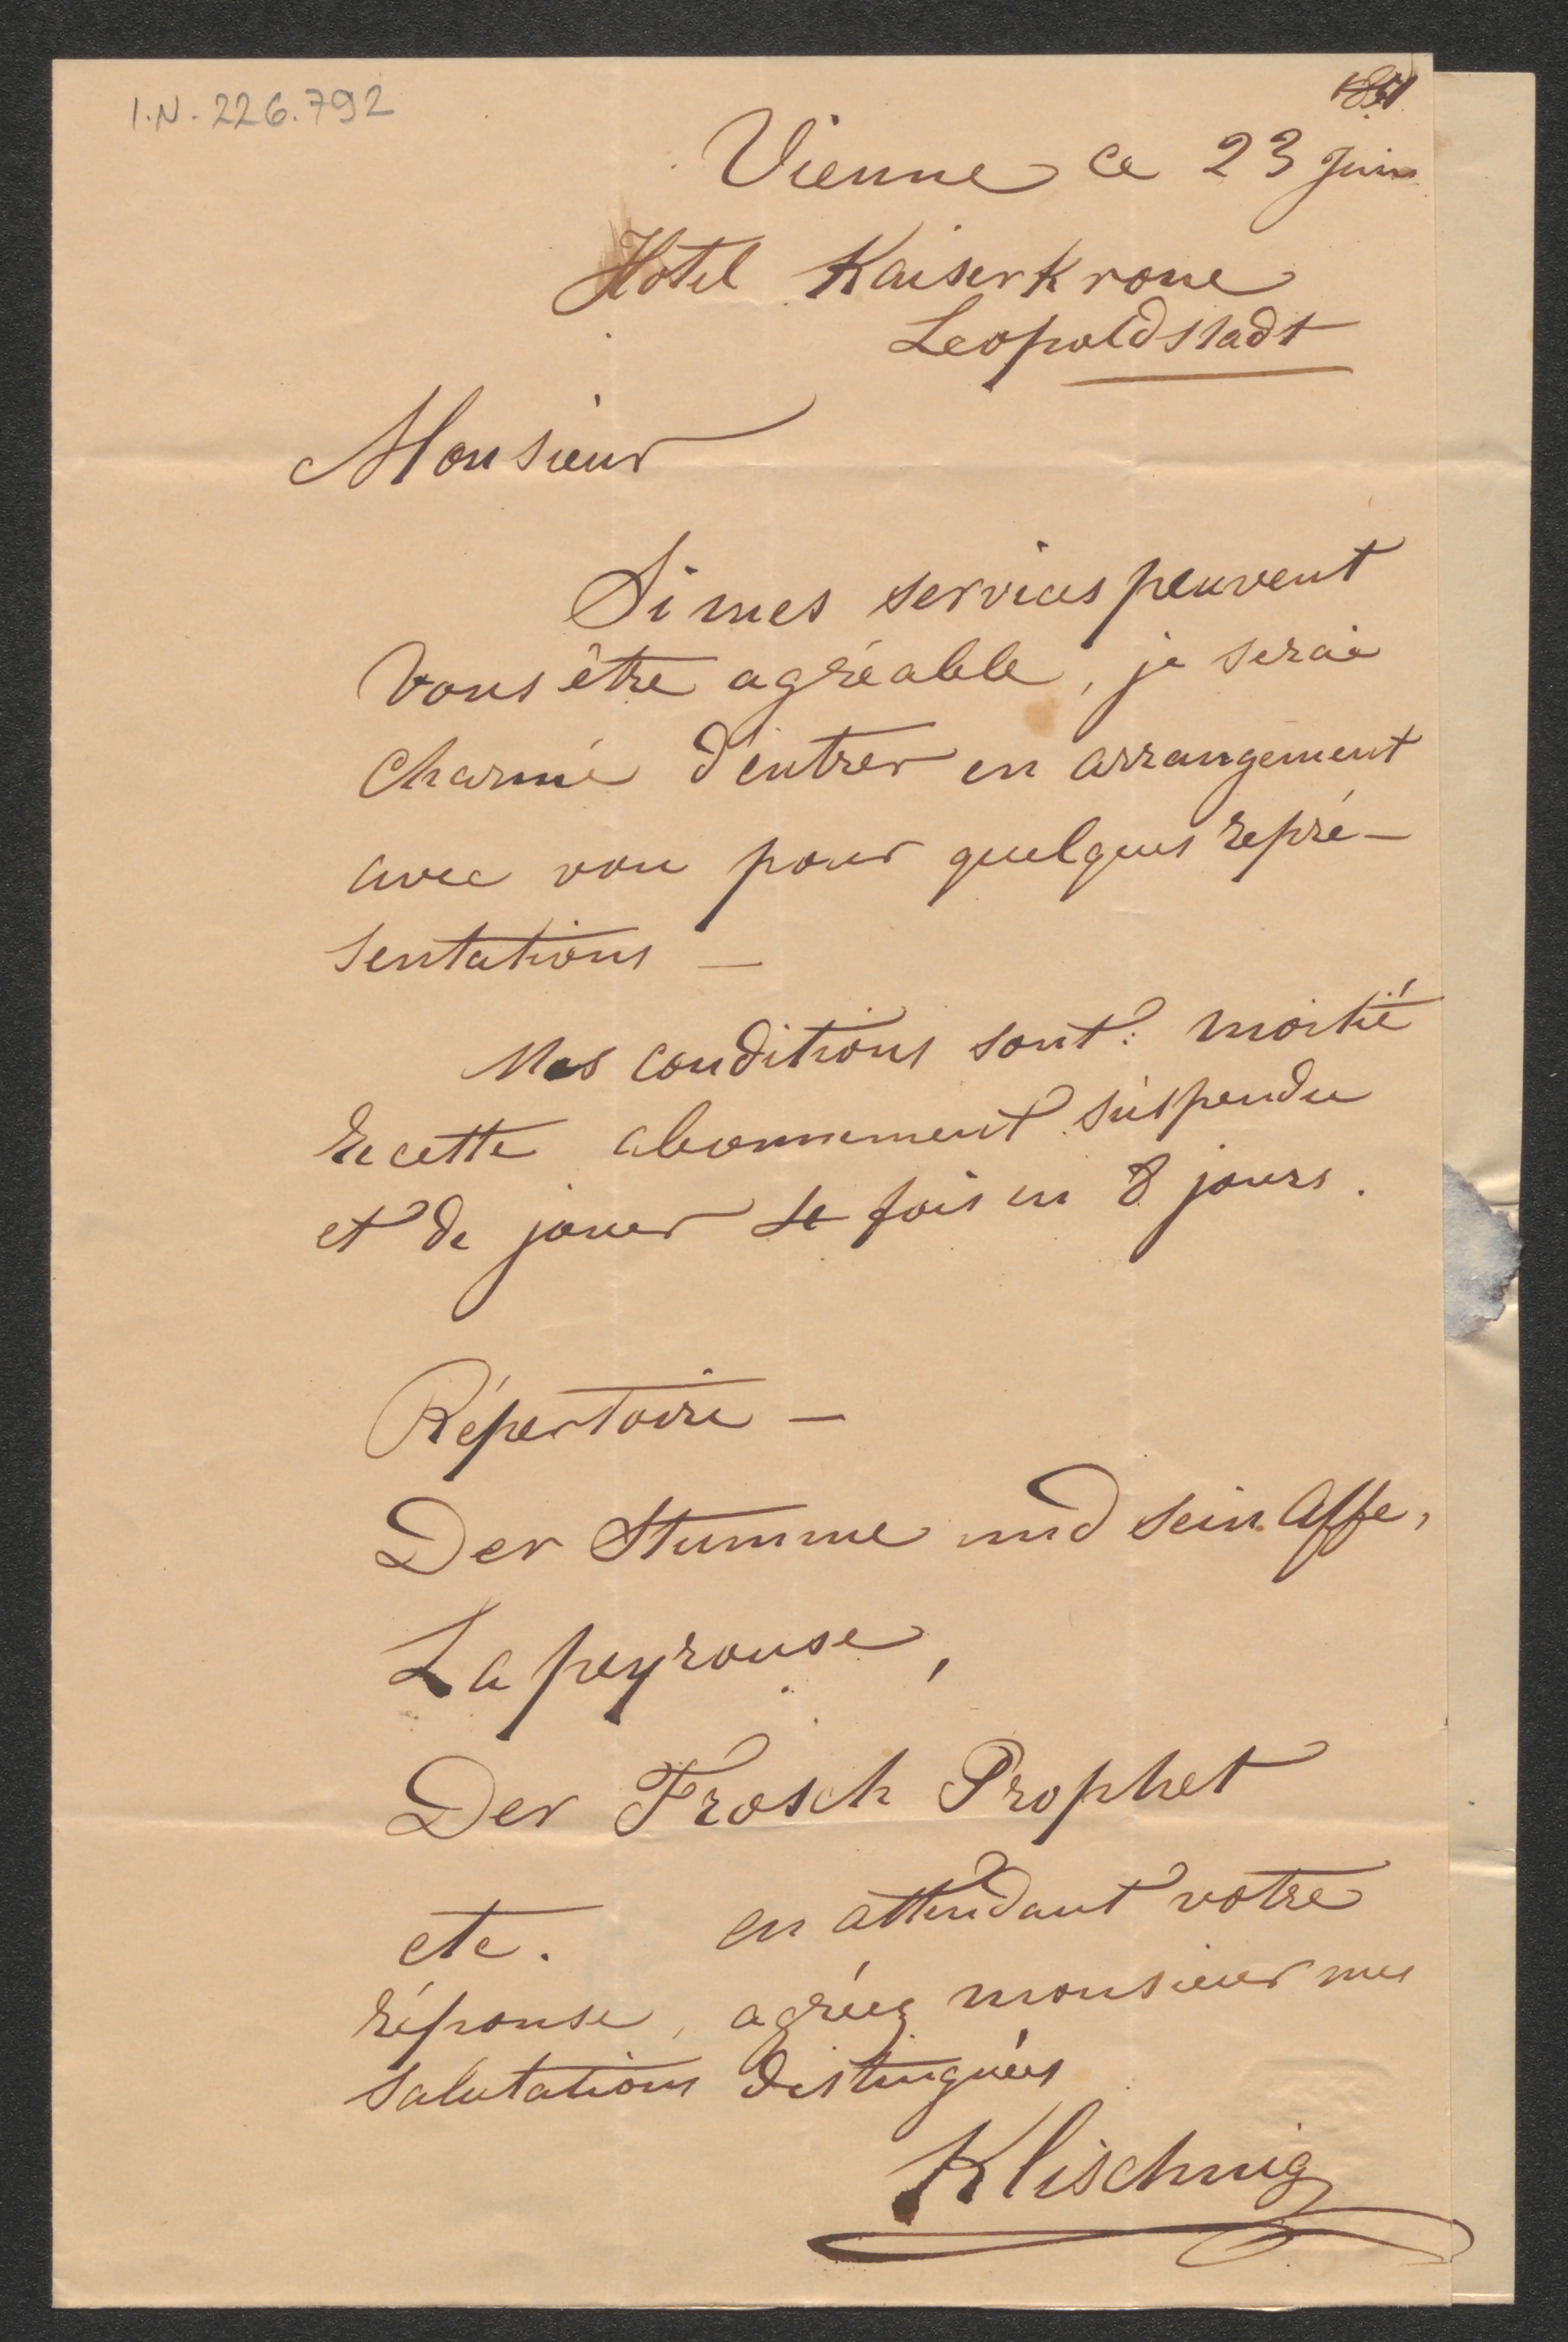 I.N. 226.792
1851
Vienne ce 23 Juin
Hotel Kaiserkrone
Leopoldstadt
Monsieur
Si mes services peuvent
vous être agréable, je serais
charmé d'entrer en arrangement
avec vou pour quelques repré-
sentations —
Mes conditions sont: moitié
recette abonnement suspendu
et de jouer 4 fois en 8 jours.
Répertoire —
Der Stumme und sein Affe,
Lapeyrouse,
Der Frosch Prophet
etc. en attendant votre
réponse, agréez monsieur mes
salutations distinguées
Klischnig